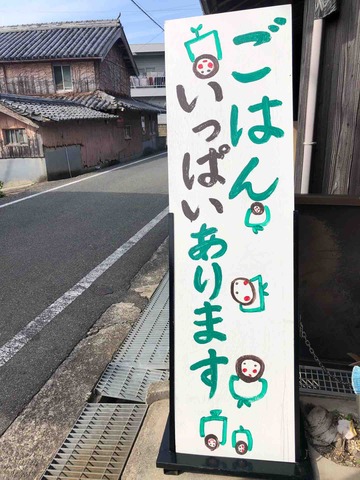 ごはん
いっぱい
あります